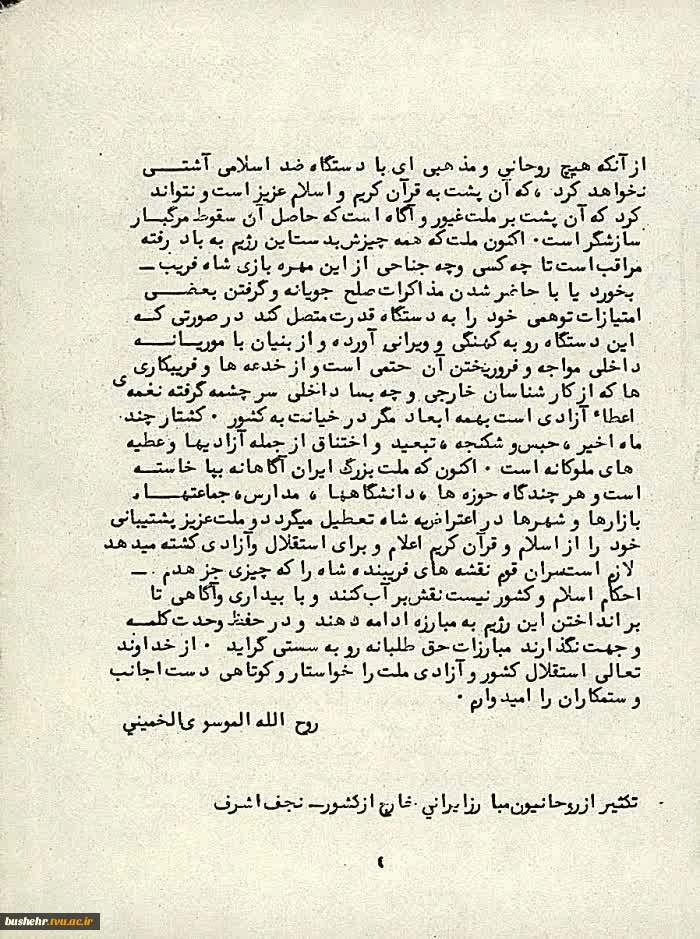 از آنکه هیچ روحانی و مذهبی ای با دستگاه ضد اسلامی آشتـــی
نخواهد کرد ، که آن پشت به قرآن کریم و اسلام عزیز است و نتواند
کرد که آن پشت بر ملت غیور و آگاه است که حاصل آن سقوط مرگبـار
سازشگر است . اکنون ملت که همه چیزش بدست این رژیم به باد رفته
مراقب است تا چه کسی وچه جناحی از این مهره بازی شاه فریب ـ
بخورد یا با حاضر شدن مذاکرات صلح جویانه و گرفتن بعضــی
امتیازات توهمی خود را به دستگاه قدرت متصل کند در صورتی کـه
این دستگاه رو به کهنگی و ویرانی آورده و از بنیان با موریـانــه
داخلی مواجه و فروریختن آن حتمی است و از خدعه ها و فریبکاری
ها که از کارشناسان خارجی و چه بسا داخلی سرچشمه گرفته نغمه ی
اعطاء آزادی است بهمه ابعاد مگر در خیانت به کشور . کشتار چند
ماه اخیر ، حبس و شکنجه ، تبعید و اختناق از جمله آزادیها وعطیه
های ملوکانه است . اکنون که ملت بزرگ ایران آگاهانه بپا خاستــه
است و هر چندگاه حوزه ها ، دانشگاهها ، مدارس ، جماعتهـا ،
بازارها و شهرها در اعتراض به شاه تعطیل میگردد و ملت عزیز پشتیبانی
خود را از اسلام و قرآن کریم اعلام و برای استقلال وآزادی کشته میدهد
لازم است سران قوم نقشه های فریبنده شاه را که چیزی جز هدم ـ
احکام اسلام و کشور نیست نقش بر آب کنند و با بیداری وآگاهی تا
برانداختن این رژیم به مبارزه ادامه دهند و در حفظ وحدت کلمــه
و جهت نگذارند مبارزات حق طلبانه رو به سستی گراید . از خداوند
تعالی استقلال کشور و آزادی ملت را خواستار و کوتاهی دست اجانب
و ستمکاران را امیدوارم .
روح الله الموسوی الخمیني
تکثیر از روحانیون مبارز ایراني خارج از کشور ـ نجف اشرف
bushehr.tvu.ac.ir